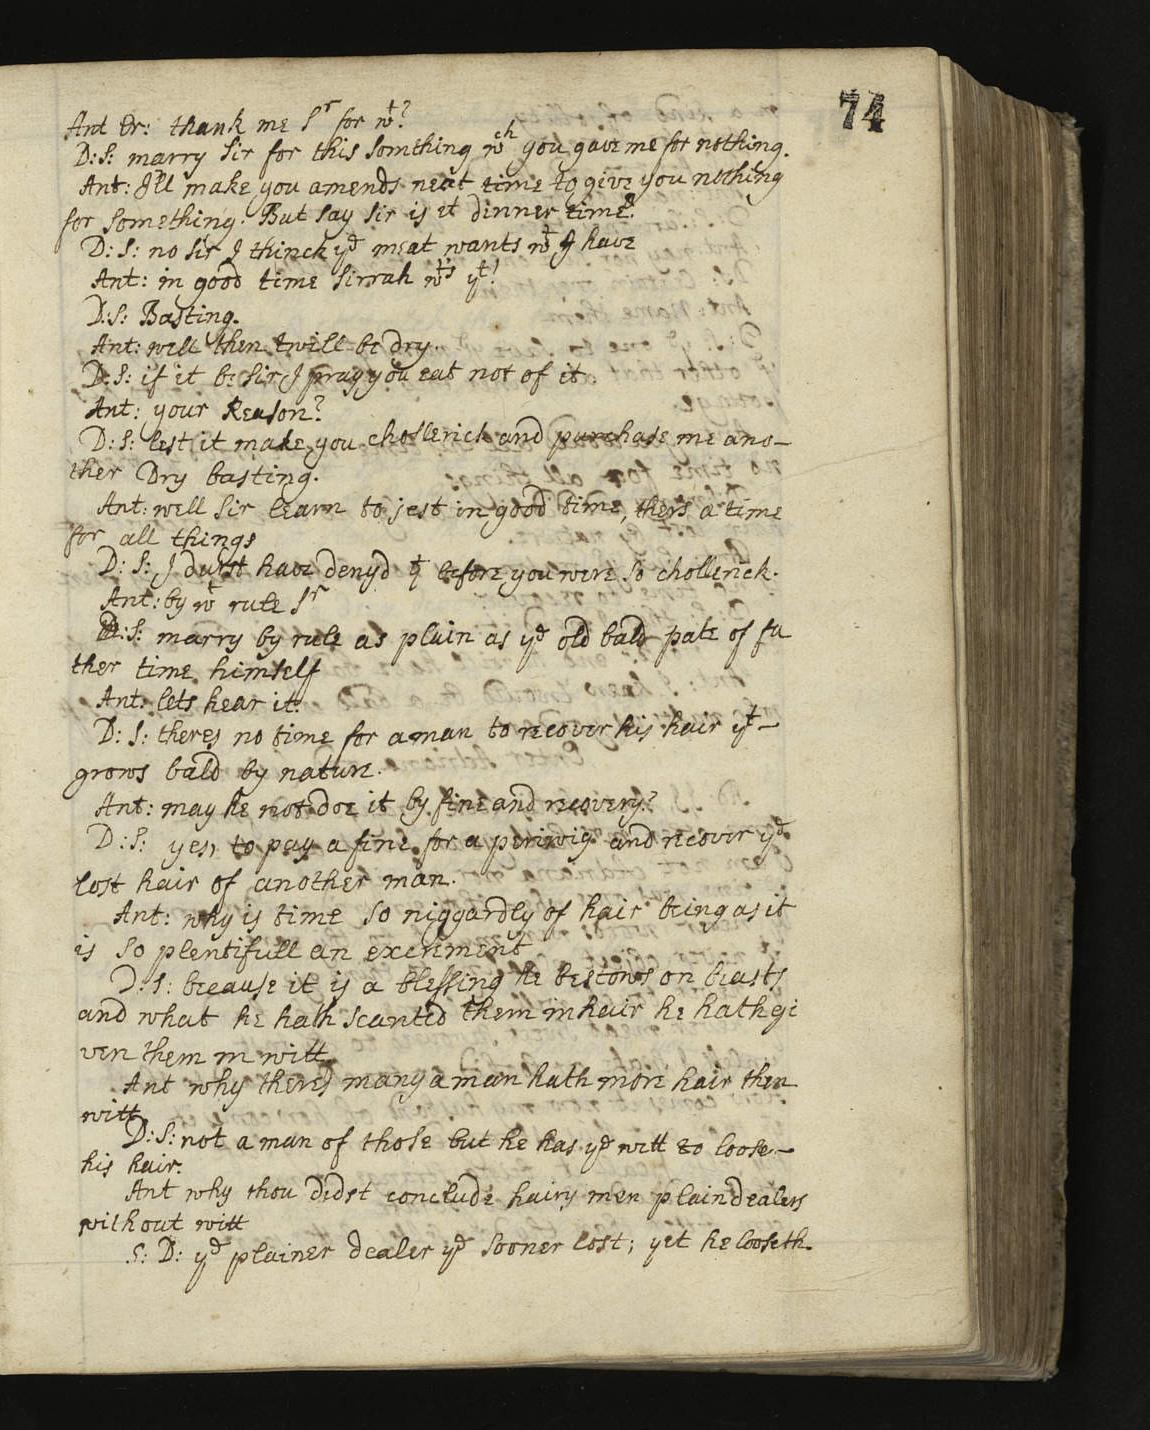 74
Ant Er: thank me Sr for wt?
D:S: marry sir for this somthing wch you gave me for nothing.
Ant: I'll make you amends next time to give you nothing
for something. But say sir is it dinner time?
D: S: no sir I thinck ye meat wants wt I have
Ant: in good time sirrah wts yt!
D:S: Basting.
Ant: well then twill be dry.
D:S: if it be sir I pray you eat not of it
Ant: your Reason?
D:S: lest it make you chollerick and purchase me ano-
ther Dry basting.
Ant: well sir learn to jest in good time, thers a time
for all things
D: S: I durst have denyd yt before you were so chollerick.
Ant: by wt rule Sr
D:S: marry by rule as plain as ye old bald pate of fa
ther time himself
Ant: lets hear it.
D: S: theres no time for a man to recover his hair yt-
grows bald by nature.
Ant: may he not doe it by fine and recovery?
D: S: yes, to pay a fine for a periwig and recover ye
lost hair of another man.
Ant: why is time so niggardly of hair being as it
is so plentifull an excriment
D:S: because it is a blessing he bestows on beasts
and what he hath scanted them in hair he hath gi
ven them in witt
Ant why theres many a man hath more hair then
witt
D:S: not a man of those but he has ye witt to loose-
his hair.
Ant why thou didst conclude hairy men plain dealers
without witt
S: D: ye plainer dealer ye sooner lost; yet he looseth.